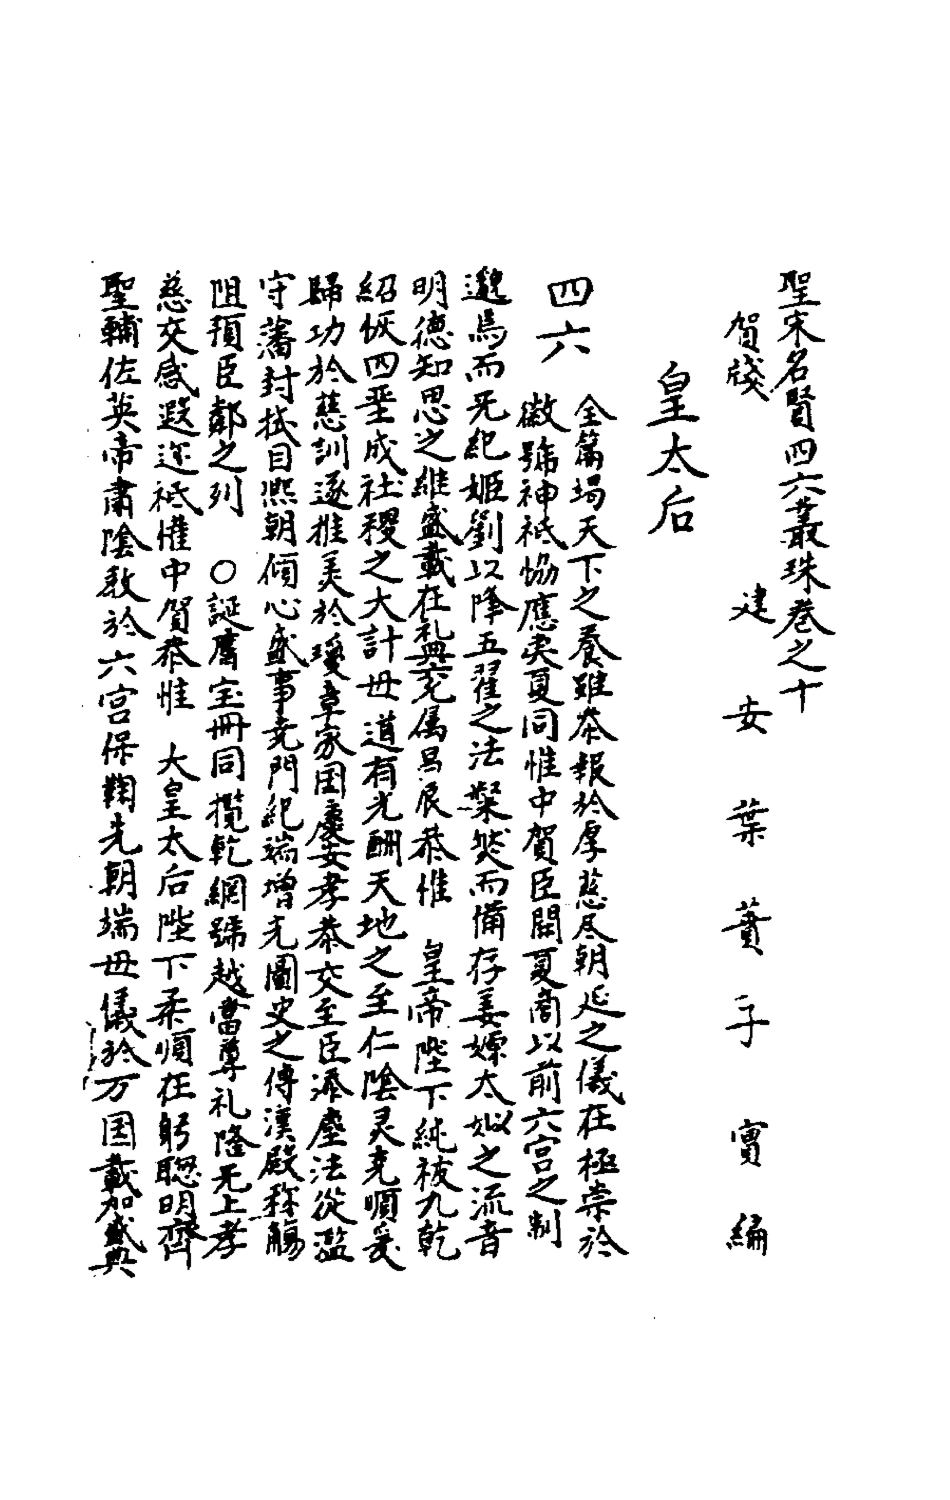 聖宋名賢四六叢珠卷之十
賀牋　　建安葉蕡子實編
皇太后
四六
全篇竭天下之養雖恭報於厚慈尽朝廷之儀在極崇於
徽號神祇恊應夷夏同惟中賀臣聞夏商以前六宮之制
邈焉而旡紀姬劉以降五翟之法粲然而備存姜嫄太姒之流音
明德知思之維盛載在礼典允属昌辰恭惟　皇帝陛下純被九乾
紹恢四聖成社稷之大計毋道有光酬天地之至仁陰灵克順爰
歸功於慈訓遂推美於瓊章家国慶安孝恭交至臣添塵法從滥
守藩封拭目熈朝傾心盛事尭門紀端增光圖史之傳漢殿称觴
阻預臣鄰之列　〇誕膺宝冊同攬乾綱號越當尊礼隆旡上孝
慈交感遐迩祗惟中賀恭惟　大皇太后陛下柔順在躬聡明齊
聖輔佐英帝肅陰教於六宮保鞠先朝端毋儀於万国載加盛典